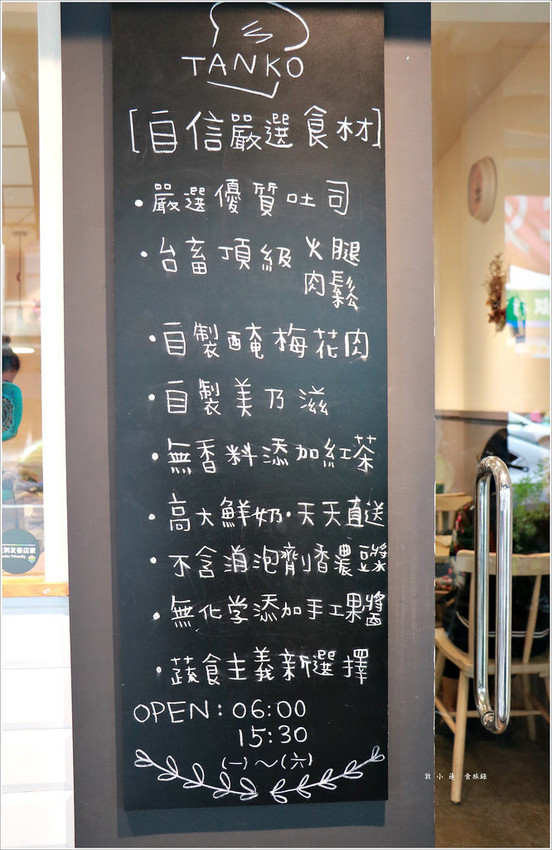 TANKO
[自信嚴選食材]
• 嚴選優質吐司
• 台畜頂級火腿
肉鬆
• 自製醃梅花肉
• 自製美乃滋
• 無香料添加紅茶
• 高大鮮奶•天天直送
• 不含消泡劑香濃豆漿
• 無化学添加手工果醬
• 蔬食主義新選擇
OPEN:06:00
15:30
(一)～(六)
敦小蓮 食旅錄